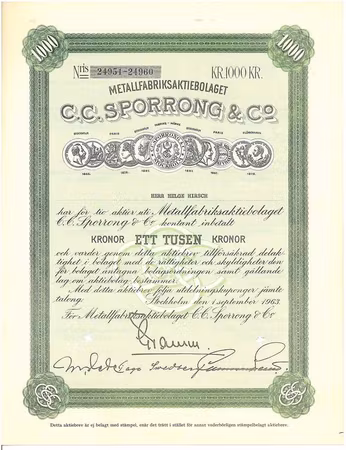 1000
1000
Nris 24951-24960
KR. 1000 KR.
METALLFABRIKSAKTIEBOLAGET
C.C. SPORRONG & Co
SPORRONG
HERR HELGE HIRSCH
har för tio aktier uti Metallfabriksaktiebolaget
C.C. Sporrong & Co kontant inbetalt
KRONOR ETT TUSEN KRONOR
och varder genom detta aktiebrev tillförsäkrad delak-
tighet i bolaget med de rättigheter och skyldigheter den
för bolaget antagna bolagsordningen samt gällande
lag om aktiebolag bestämmer.
Med detta aktiebrev följa utdelningskuponger jämte
talong.
Stockholm den 1 september 1963.
För Metallfabriksaktiebolaget C.C. Sporrong & Co
1000
1000
Detta aktiebrev är ej belagt med stämpel, enär det trätt i stället för annat vederbörligen stämpelbelagt aktiebrev.